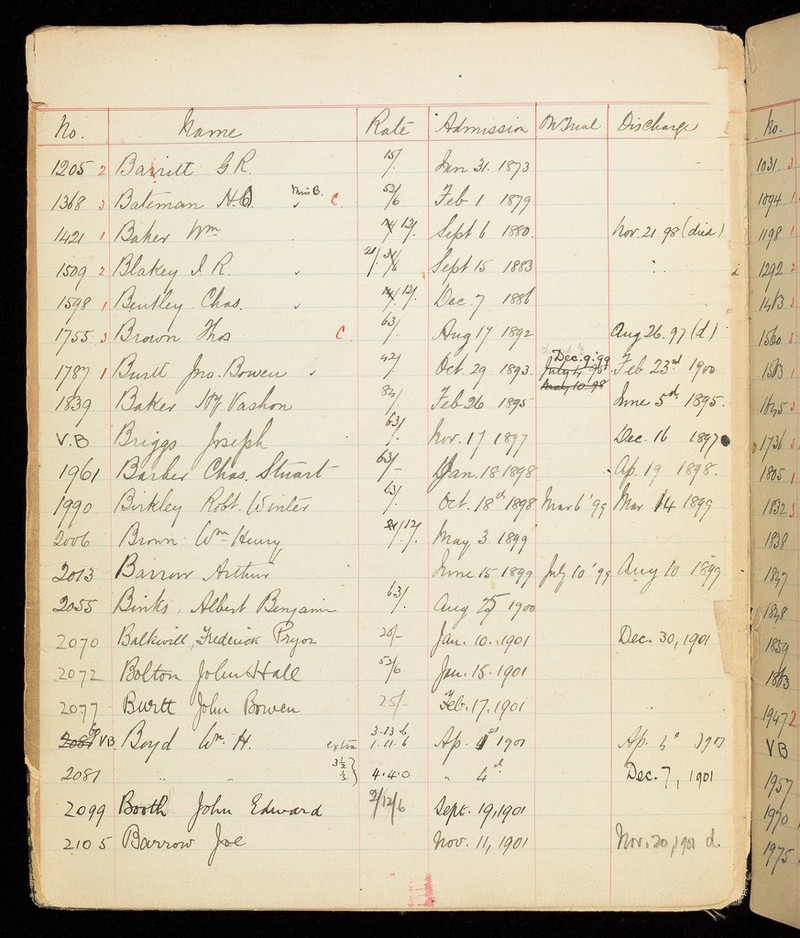 No. Name Rate Admission On Trial Discharge No.
1205 2 Barritt G R. 15/. Jan 31. 1873 1031
1368 3 Bateman H. Miss B. C. 52/6 Feb 1 1879 1094
1421 1 Baker Wm 12/. Sept 6 1880. Nov. 21 98 (died) 1198
1509 2 Blakey J R. 21/ Sept 15 1883 1292 2
1598 1 Bentley Chas. 12/. Dec 7 1886 1463
1755 3 Brown Thos C. 63/. Aug 17 1892 Aug 26. 97 (d) 1560
1787 1 Burtt Jno. Bowen 42/. Oct. 29 1893. Dec. 9. 99 July 4 98 May 10 98 Feb 23rd 1900
1839 Baker Hy Vashon 84/. Feb 26 1895 June 5th 1895.
V.B Briggs Joseph 63/. Nov. 17 1897 Dec. 16 1897 1736
1961 Barber Chas. Stuart 63/- Jan. 18 1898 Ap. 19 1898. 1805
1990 Birkley Robt. Winter 63/. Oct. 18th 1898 Mar 6 '99 Mar 14 1899 1832
2006 Brown Wm Henry 12/. May 3 1899 1838
2013 Barrow Arthur June 15 1899 July 10 '99 Aug 10 1899 1847
2055 Binks, Albert Benjamin 63/. Aug 25 1900 1848
2070 Balkwill, Frederick Pryor 20/- Jan. 10. 1901 Dec. 30, 1901 1859
2072 Bolton John Hall 52/6 Jan. 15. 1901 1863
2077 Burtt John Bowen 25/- Feb. 17. 1901 1947 2
2087 VB. Boyd Wm. H. extra 3.13.6 1.11.6 Ap. 1st 1901 Ap. 4th 1901 VB
2087 " " 3½ ½ } 4.4.0 " 4th. Dec. 7, 1901 1957
2099 Booth John Edward 2/12/6 Sept. 19, 1901 1970
2105 Barrow Joe Nov. 11, 1901 Nov. 20, 1901 d. 1975